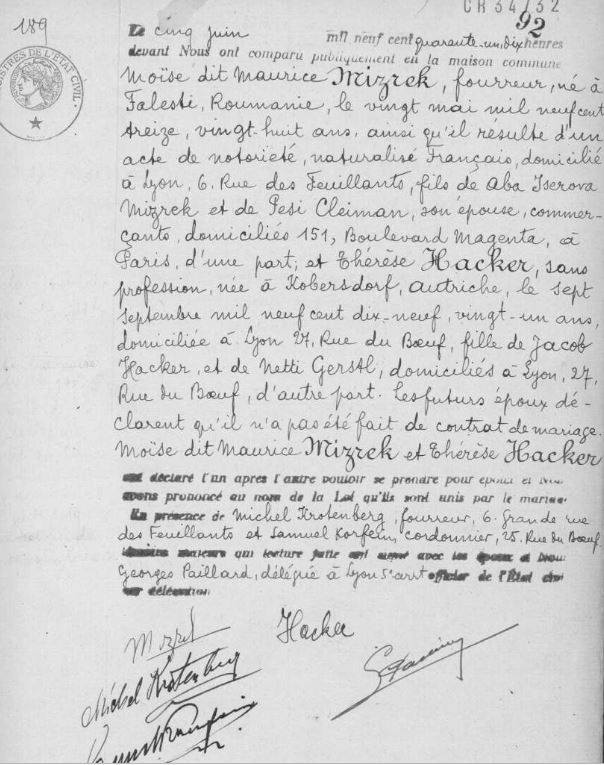 189
CR 34/32
92
Le cinq juin mil neuf cent quarante-un, dix heures
devant Nous ont comparu publiquement en la maison commune
Moïse dit Maurice Mizrek, fourreur, né à
Falesti, Roumanie, le vingt mai mil neuf cent
treize, vingt-huit ans, ainsi qu'il résulte d'un
acte de notorieté, naturalisé Français, domicilié
à Lyon, 6. Rue des Feuillants, fils de Aba Iserova
Mizrek et de Pesi Cleiman, son épouse, commer-
çants, domiciliés 151, Boulevard Magenta, à
Paris, d'une part; et Thérèse Hacker, sans
profession, née à Kobersdorf, Autriche, le sept
Septembre mil neuf cent dix-neuf, vingt-un ans,
domiciliée à Lyon 27, Rue du Bœuf, fille de Jacob
Hacker, et de Netti Gerstl, domiciliés à Lyon, 27,
Rue du Bœuf, d'autre part. Les futurs époux dé-
clarent qu'il n'a pas été fait de contrat de mariage.
Moïse dit Maurice Mizrek et Thérèse Hacker
ont déclaré l'un après l'autre vouloir se prendre pour époux et Nous
avons prononcé au nom de la Loi qu'ils sont unis par le mariage
En présence de Michel Krotenberg, fourreur, 6. Grande rue
des Feuillants et Samuel Korfein, cordonnier, 25. Rue du Bœuf
témoins majeurs qui lecture faite ont signé avec les époux et Nous
Georges Paillard, délégué à Lyon 5e arrt officier de l'État civil
par délégation
Hacker
Michel Krotenberg